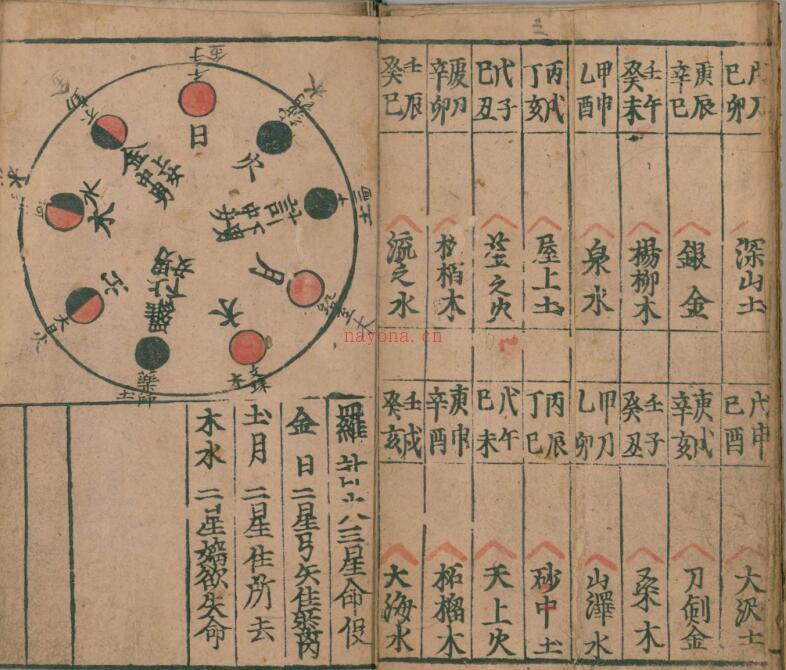 戊刁
己卯
深山土
庚辰
辛巳
銀金
壬午
癸未
楊柳木
甲申
乙酉
泉水
丙戌
丁亥
屋上土
戊子
己丑
之火
庚刁
辛卯
栢木
壬辰
癸巳
流之水
戊申
己酉
大沢土
庚戌
辛亥
刀剣金
壬子
癸丑
桑木
甲刁
乙卯
山澤水
丙辰
丁巳
砂中土
戊午
己未
天上火
庚申
辛酉
柘榴木
壬戌
癸亥
大海水
nayona.cn
日
火
計
月
木
羅
土
水
金
羅 八三星命
金日二星弓矢住
土月二星住所去
木水二星婬欲失命